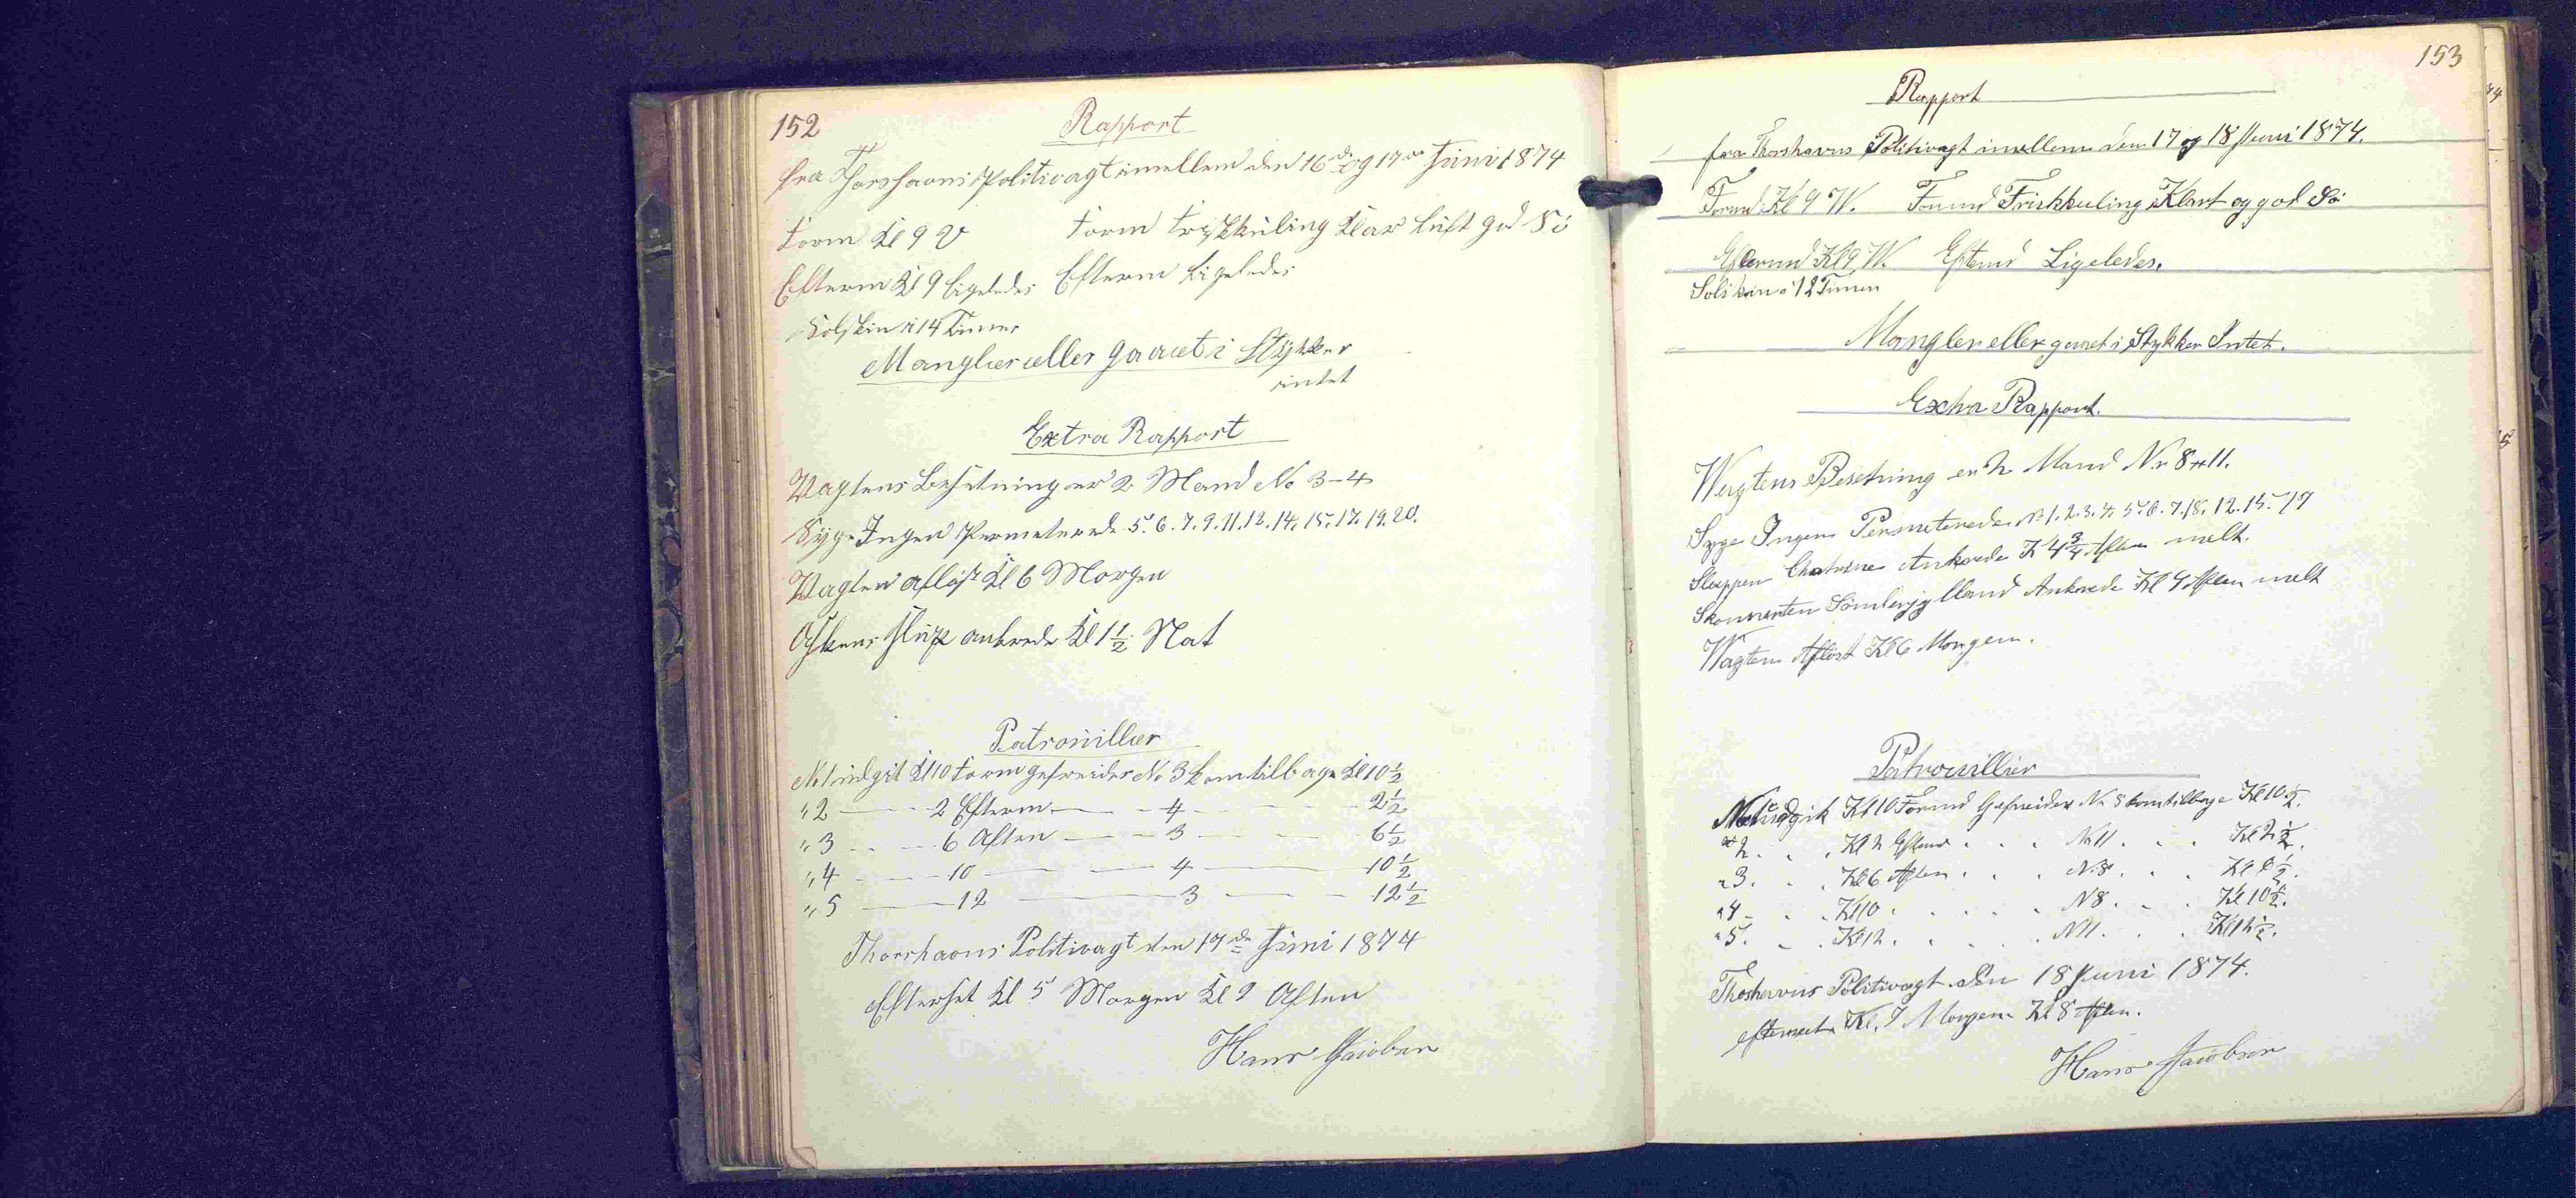 152
Rapport
fra Thorshavns Politivagt imellem den 16de og 17de Juni 1874
Form Kl 9 V Form Friskkuling Klar Luft god Sö
Efterm Kl 9 Ligeledes Efterm Ligeledes
Solskin i 14 Timer
Manglier eller gaaet i Stykker
intet
Extra Rapport
Vagtens Besetning er 2 Mand No 3-4
Syge Ingen Permeterede 5. 6. 7. 9. 11. 12. 14. 15. 17. 19. 20.
Vagten aflöst Kl 6 Morgen
Slup ankrede Kl 1 1/2 Nat
Patrouillier
No 1 udgik Kl 10 Form gefreider No 3 kom tilbage Kl 10 1/2
" 2 — 2 Efterm — 4 — 2 1/2
" 3 — 6 Aften — 3 — 6 1/2
" 4 — 10 — 4 — 10 1/2
" 5 — 12 — 3 — 12 1/2
Thorshavns Politivagt den 17de Juni 1874
Efterset Kl 5 Morgen Kl 9 Aften
Hans Jacobsen
153
Rapport
fra Thorshavns Politivagt imellem den 17 og 18 Juni 1874.
Formd Kl 9 W. Formd Friskkuling Klart og god Sö
Eftermd Kl 9 W. Eftmd Ligeledes.
Solskin i 12 Timer
Mangler eller gaaet i Stykker Intet.
Extra Rapport.
Wagtens Besetning er 2 Mand Nr 8 & 11.
Syge Ingen Permeterede Nr 1. 2. 3. 4. 5. 6. 7. 18. 12. 15. 19
Sluppen Chatrine Ankrede K 4 3/4 Aften melt.
Skonnerten Sönderjylland Ankrede Kl 9 Aften melt
Wagten Aflöst Kl 6 Morgen.
Patrouillier
No 1 udgik Kl 10 Formd Gefreider Nr 8 kom tilbage Kl 10 1/2.
" 2. . . Kl 2 Eftmd . . . N 11. . . Kl 2 1/2.
" 3. . . Kl 6 Aften . . . N 8. . . Kl 6 1/2.
" 4 . . Kl 10 . . . . . N 8. . . Kl 10 1/2.
" 5. . . Kl 12. . . . . N 11. . . Kl 12 1/2.
Thorshavns Politivagt den 18 Juni 1874.
efterseet Kl. 7 Morgen Kl 8 Aften.
Hans Jacobsen